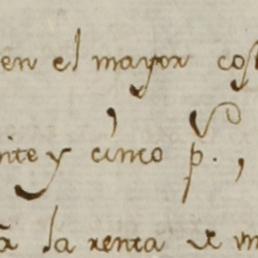 en el mayor cos
nte y cinco p.,
la renta